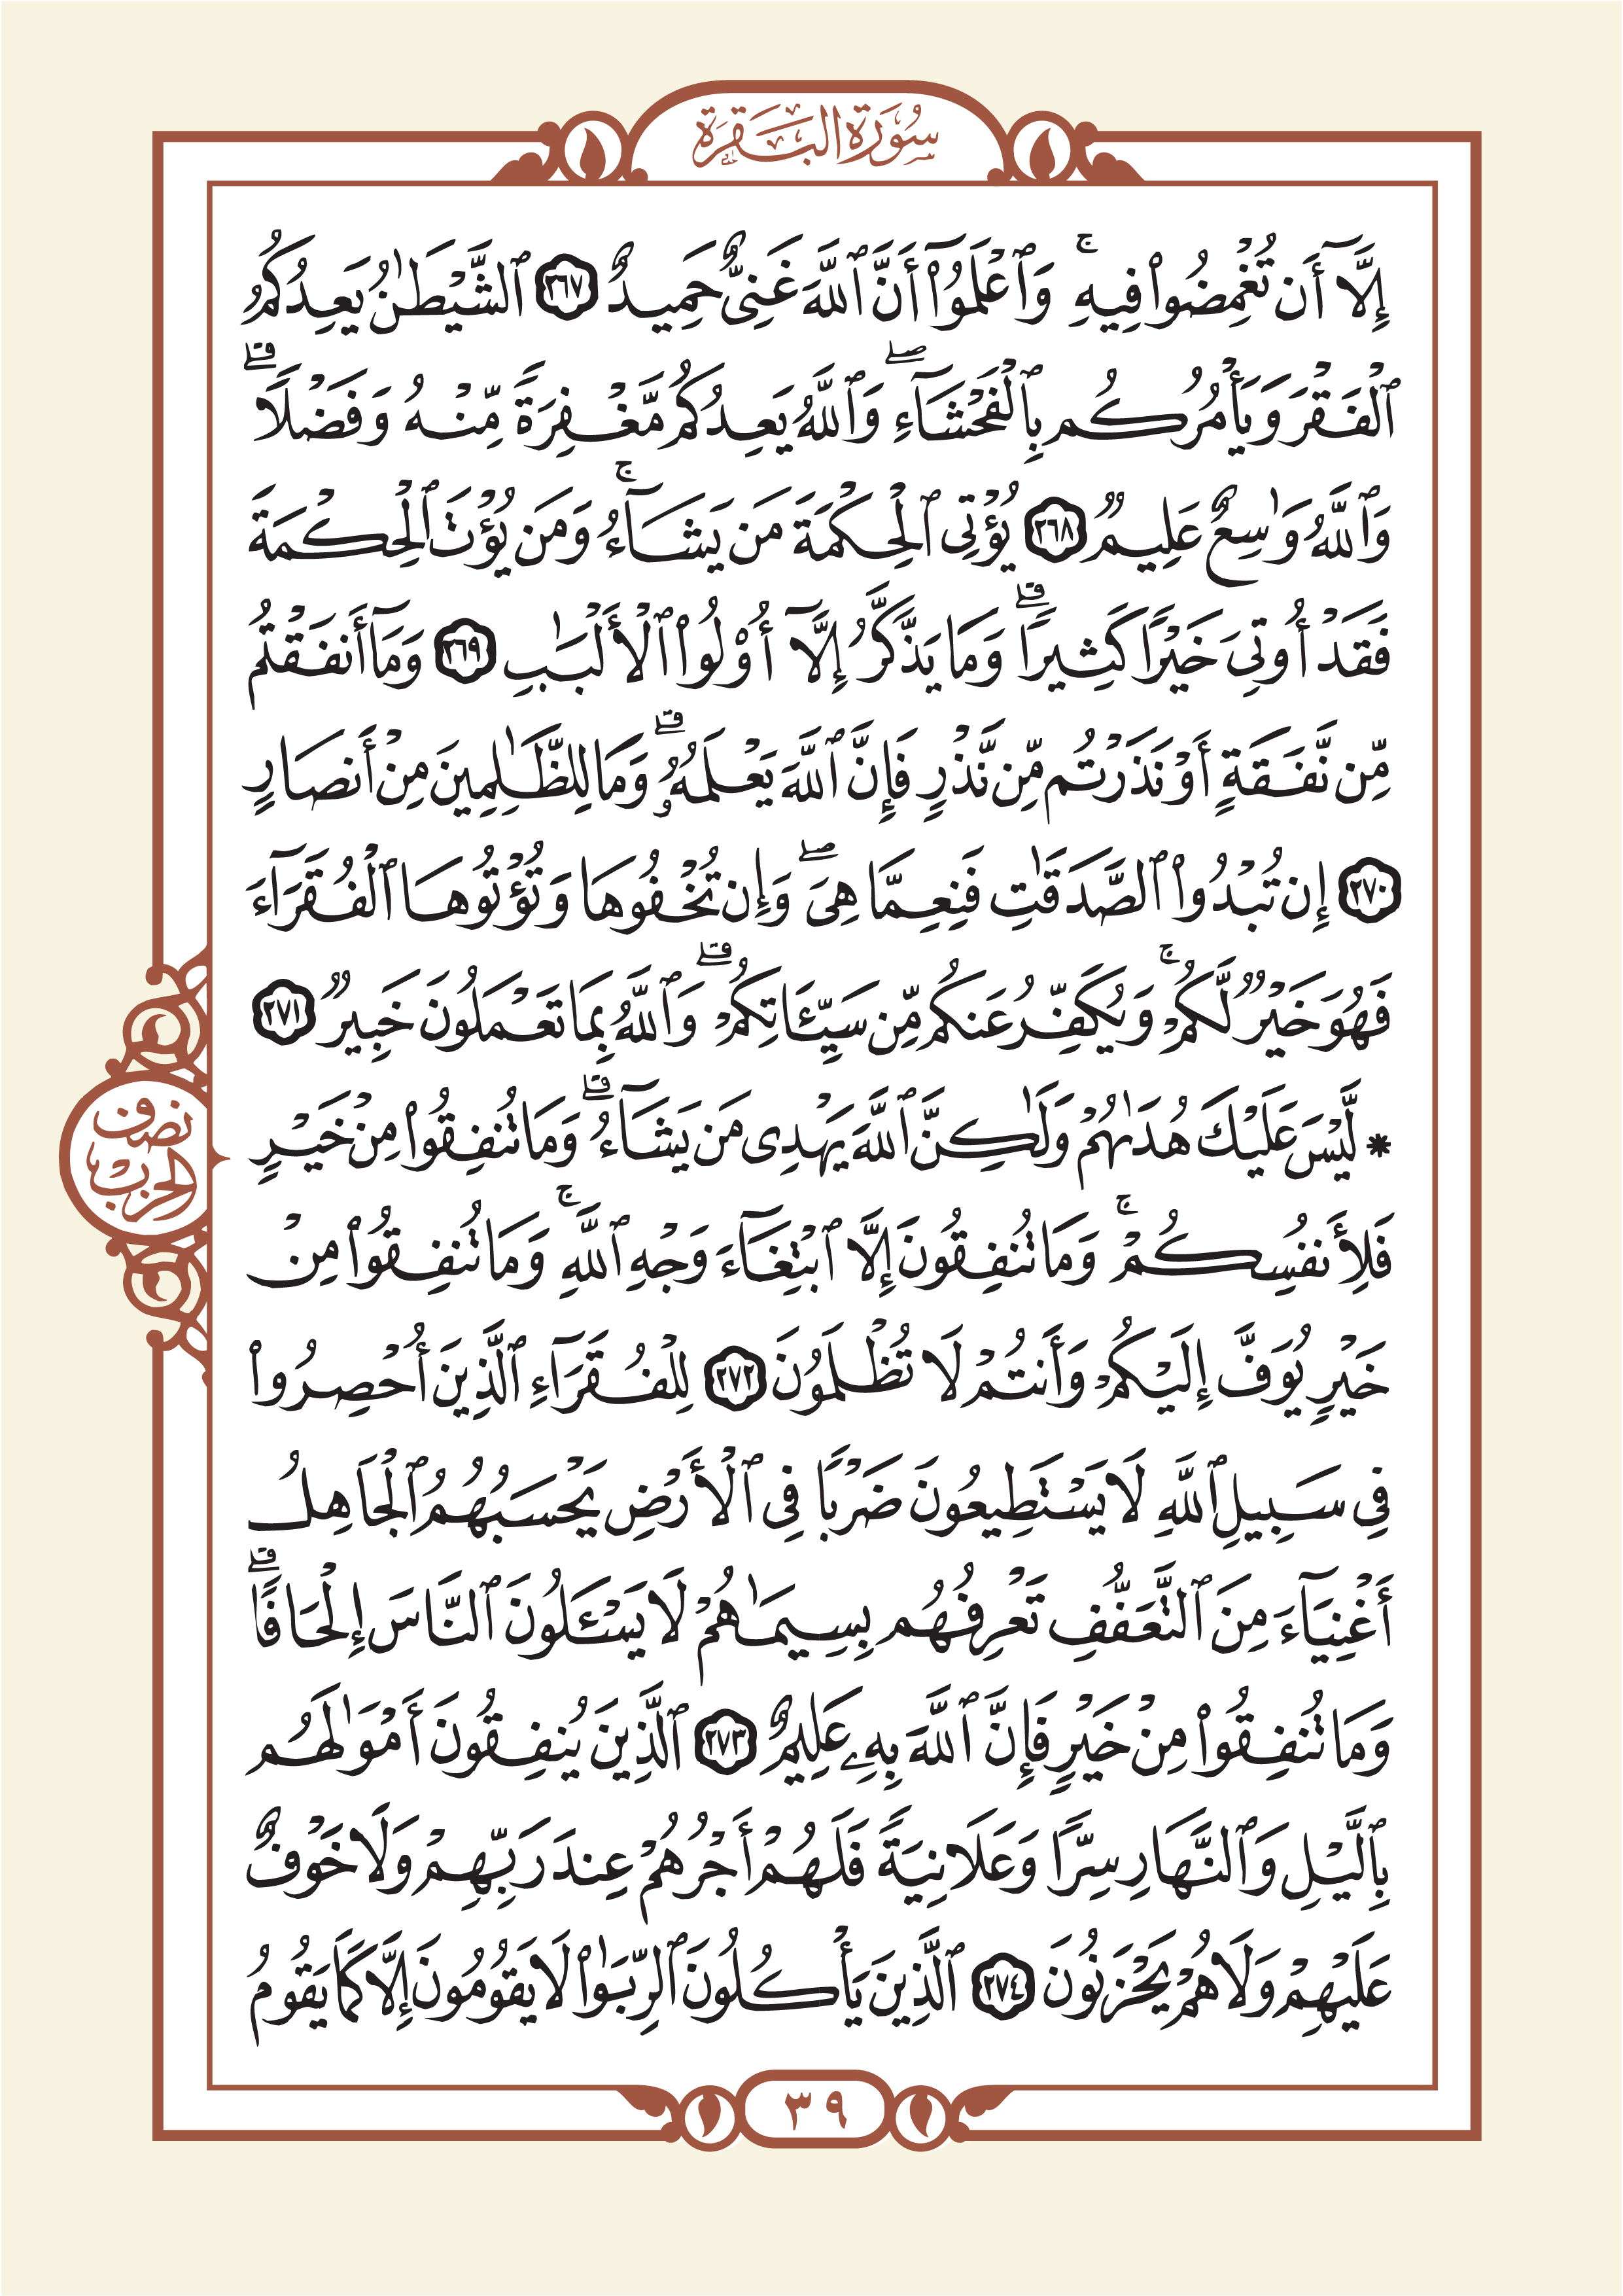 سُورَةُ البَقَرَةِ
إِلَّآ أَن تُغْمِضُوا۟ فِيهِ ۚ وَٱعْلَمُوٓا۟ أَنَّ ٱللَّهَ غَنِىٌّ حَمِيدٌ ٢٦٧ ٱلشَّيْطَـٰنُ يَعِدُكُمُ
ٱلْفَقْرَ وَيَأْمُرُكُم بِٱلْفَحْشَآءِ ۖ وَٱللَّهُ يَعِدُكُم مَّغْفِرَةً مِّنْهُ وَفَضْلًا ۗ
وَٱللَّهُ وَٰسِعٌ عَلِيمٌ ٢٦٨ يُؤْتِى ٱلْحِكْمَةَ مَن يَشَآءُ ۚ وَمَن يُؤْتَ ٱلْحِكْمَةَ
فَقَدْ أُوتِىَ خَيْرًا كَثِيرًا ۗ وَمَا يَذَّكَّرُ إِلَّآ أُو۟لُوا۟ ٱلْأَلْبَـٰبِ ٢٦٩ وَمَآ أَنفَقْتُم
مِّن نَّفَقَةٍ أَوْ نَذَرْتُم مِّن نَّذْرٍ فَإِنَّ ٱللَّهَ يَعْلَمُهُۥ ۗ وَمَا لِلظَّـٰلِمِينَ مِنْ أَنصَارٍ
٢٧٠ إِن تُبْدُوا۟ ٱلصَّدَقَـٰتِ فَنِعِمَّا هِىَ ۖ وَإِن تُخْفُوهَا وَتُؤْتُوهَا ٱلْفُقَرَآءَ
فَهُوَ خَيْرٌ لَّكُمْ ۚ وَيُكَفِّرُ عَنكُم مِّن سَيِّـَٔاتِكُمْ ۗ وَٱللَّهُ بِمَا تَعْمَلُونَ خَبِيرٌ ٢٧١
* لَّيْسَ عَلَيْكَ هُدَىٰهُمْ وَلَـٰكِنَّ ٱللَّهَ يَهْدِى مَن يَشَآءُ ۗ وَمَا تُنفِقُوا۟ مِنْ خَيْرٍ
نصف
الحزب
فَلِأَنفُسِكُمْ ۚ وَمَا تُنفِقُونَ إِلَّا ٱبْتِغَآءَ وَجْهِ ٱللَّهِ ۚ وَمَا تُنفِقُوا۟ مِنْ
خَيْرٍ يُوَفَّ إِلَيْكُمْ وَأَنتُمْ لَا تُظْلَمُونَ ٢٧٢ لِلْفُقَرَآءِ ٱلَّذِينَ أُحْصِرُوا۟
فِى سَبِيلِ ٱللَّهِ لَا يَسْتَطِيعُونَ ضَرْبًا فِى ٱلْأَرْضِ يَحْسَبُهُمُ ٱلْجَاهِلُ
أَغْنِيَآءَ مِنَ ٱلتَّعَفُّفِ تَعْرِفُهُم بِسِيمَـٰهُمْ لَا يَسْـَٔلُونَ ٱلنَّاسَ إِلْحَافًا ۗ
وَمَا تُنفِقُوا۟ مِنْ خَيْرٍ فَإِنَّ ٱللَّهَ بِهِۦ عَلِيمٌ ٢٧٣ ٱلَّذِينَ يُنفِقُونَ أَمْوَٰلَهُم
بِٱلَّيْلِ وَٱلنَّهَارِ سِرًّا وَعَلَانِيَةً فَلَهُمْ أَجْرُهُمْ عِندَ رَبِّهِمْ وَلَا خَوْفٌ
عَلَيْهِمْ وَلَا هُمْ يَحْزَنُونَ ٢٧٤ ٱلَّذِينَ يَأْكُلُونَ ٱلرِّبَوٰا۟ لَا يَقُومُونَ إِلَّا كَمَا يَقُومُ
٣٩